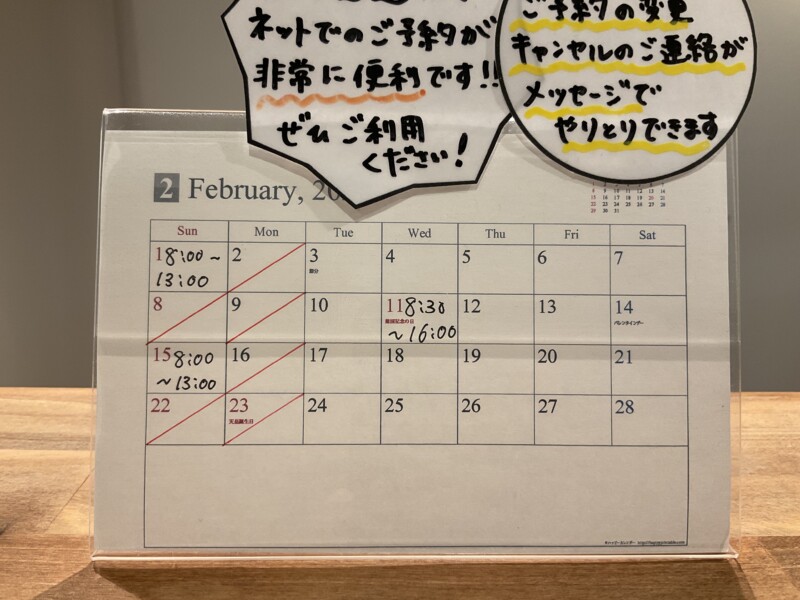 ネットでのご予約が
非常に便利です!!
ぜひご利用
ください!
ご予約の変更
キャンセルのご連絡が
メッセージで
やりとりできます
2 February, 20
Sun Mon Tue Wed Thu Fri Sat
1 8:00~ 2 3 4 5 6 7
13:00 節分
8 9 10 11 8:30 12 13 14
建国記念の日 バレンタインデー
~16:00
15 8:00 16 17 18 19 20 21
~13:00
22 23 24 25 26 27 28
天皇誕生日